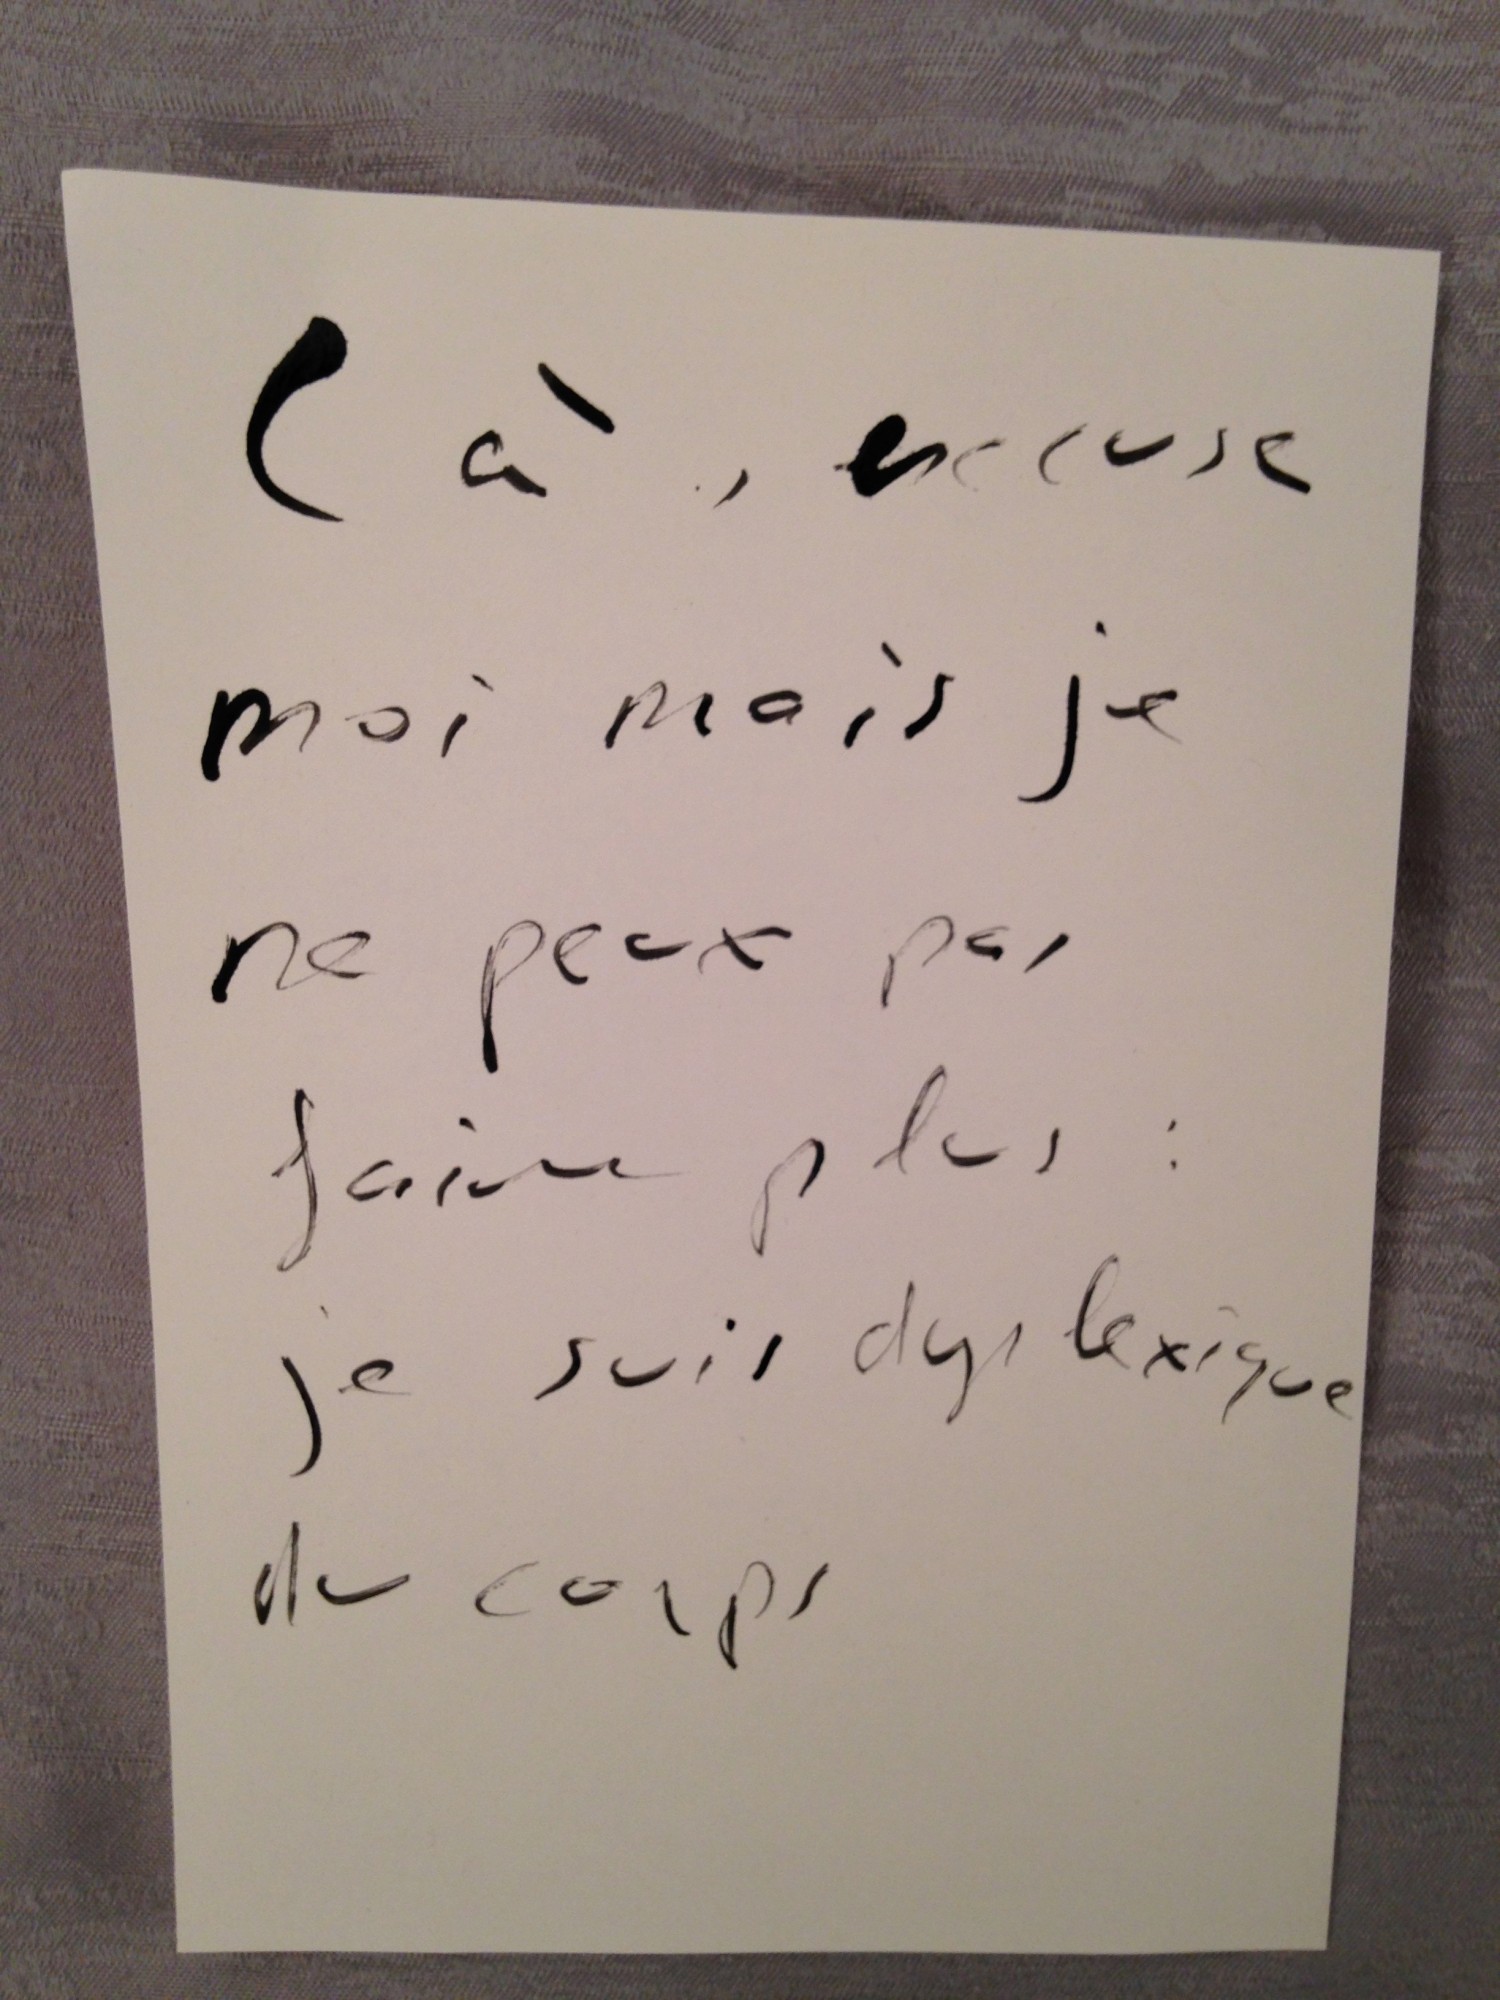 Là, excuse
moi mais je
ne peux pas
faire plus :
je suis dyslexique
du corps